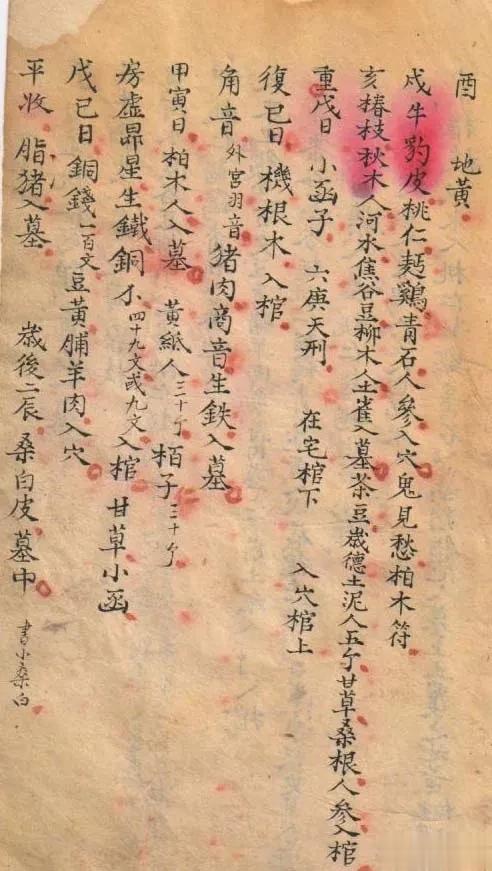 酉 地黄
戌牛豹皮桃仁麺鷄青石人參入穴鬼見愁柏木符
亥椿枝秋木人河水焦谷豆柳木人土雀入墓茶豆歲德土泥人五个甘草桑根人參入棺
重戊日 小函子 六庚天刑 在宅棺下 入穴棺上
復巳日 機根木入棺
角音外宮羽音猪肉商音生鉄入墓
甲寅日 柏木人入墓 黃紙人三十个 栢子三十个
房虛昴星生鐵銅 四十九文或九文入棺 甘草小函
戊巳日銅錢一百文豆黃脯羊肉入穴
平收 脂猪入墓 歲後二辰桑白皮墓中 書小桑白